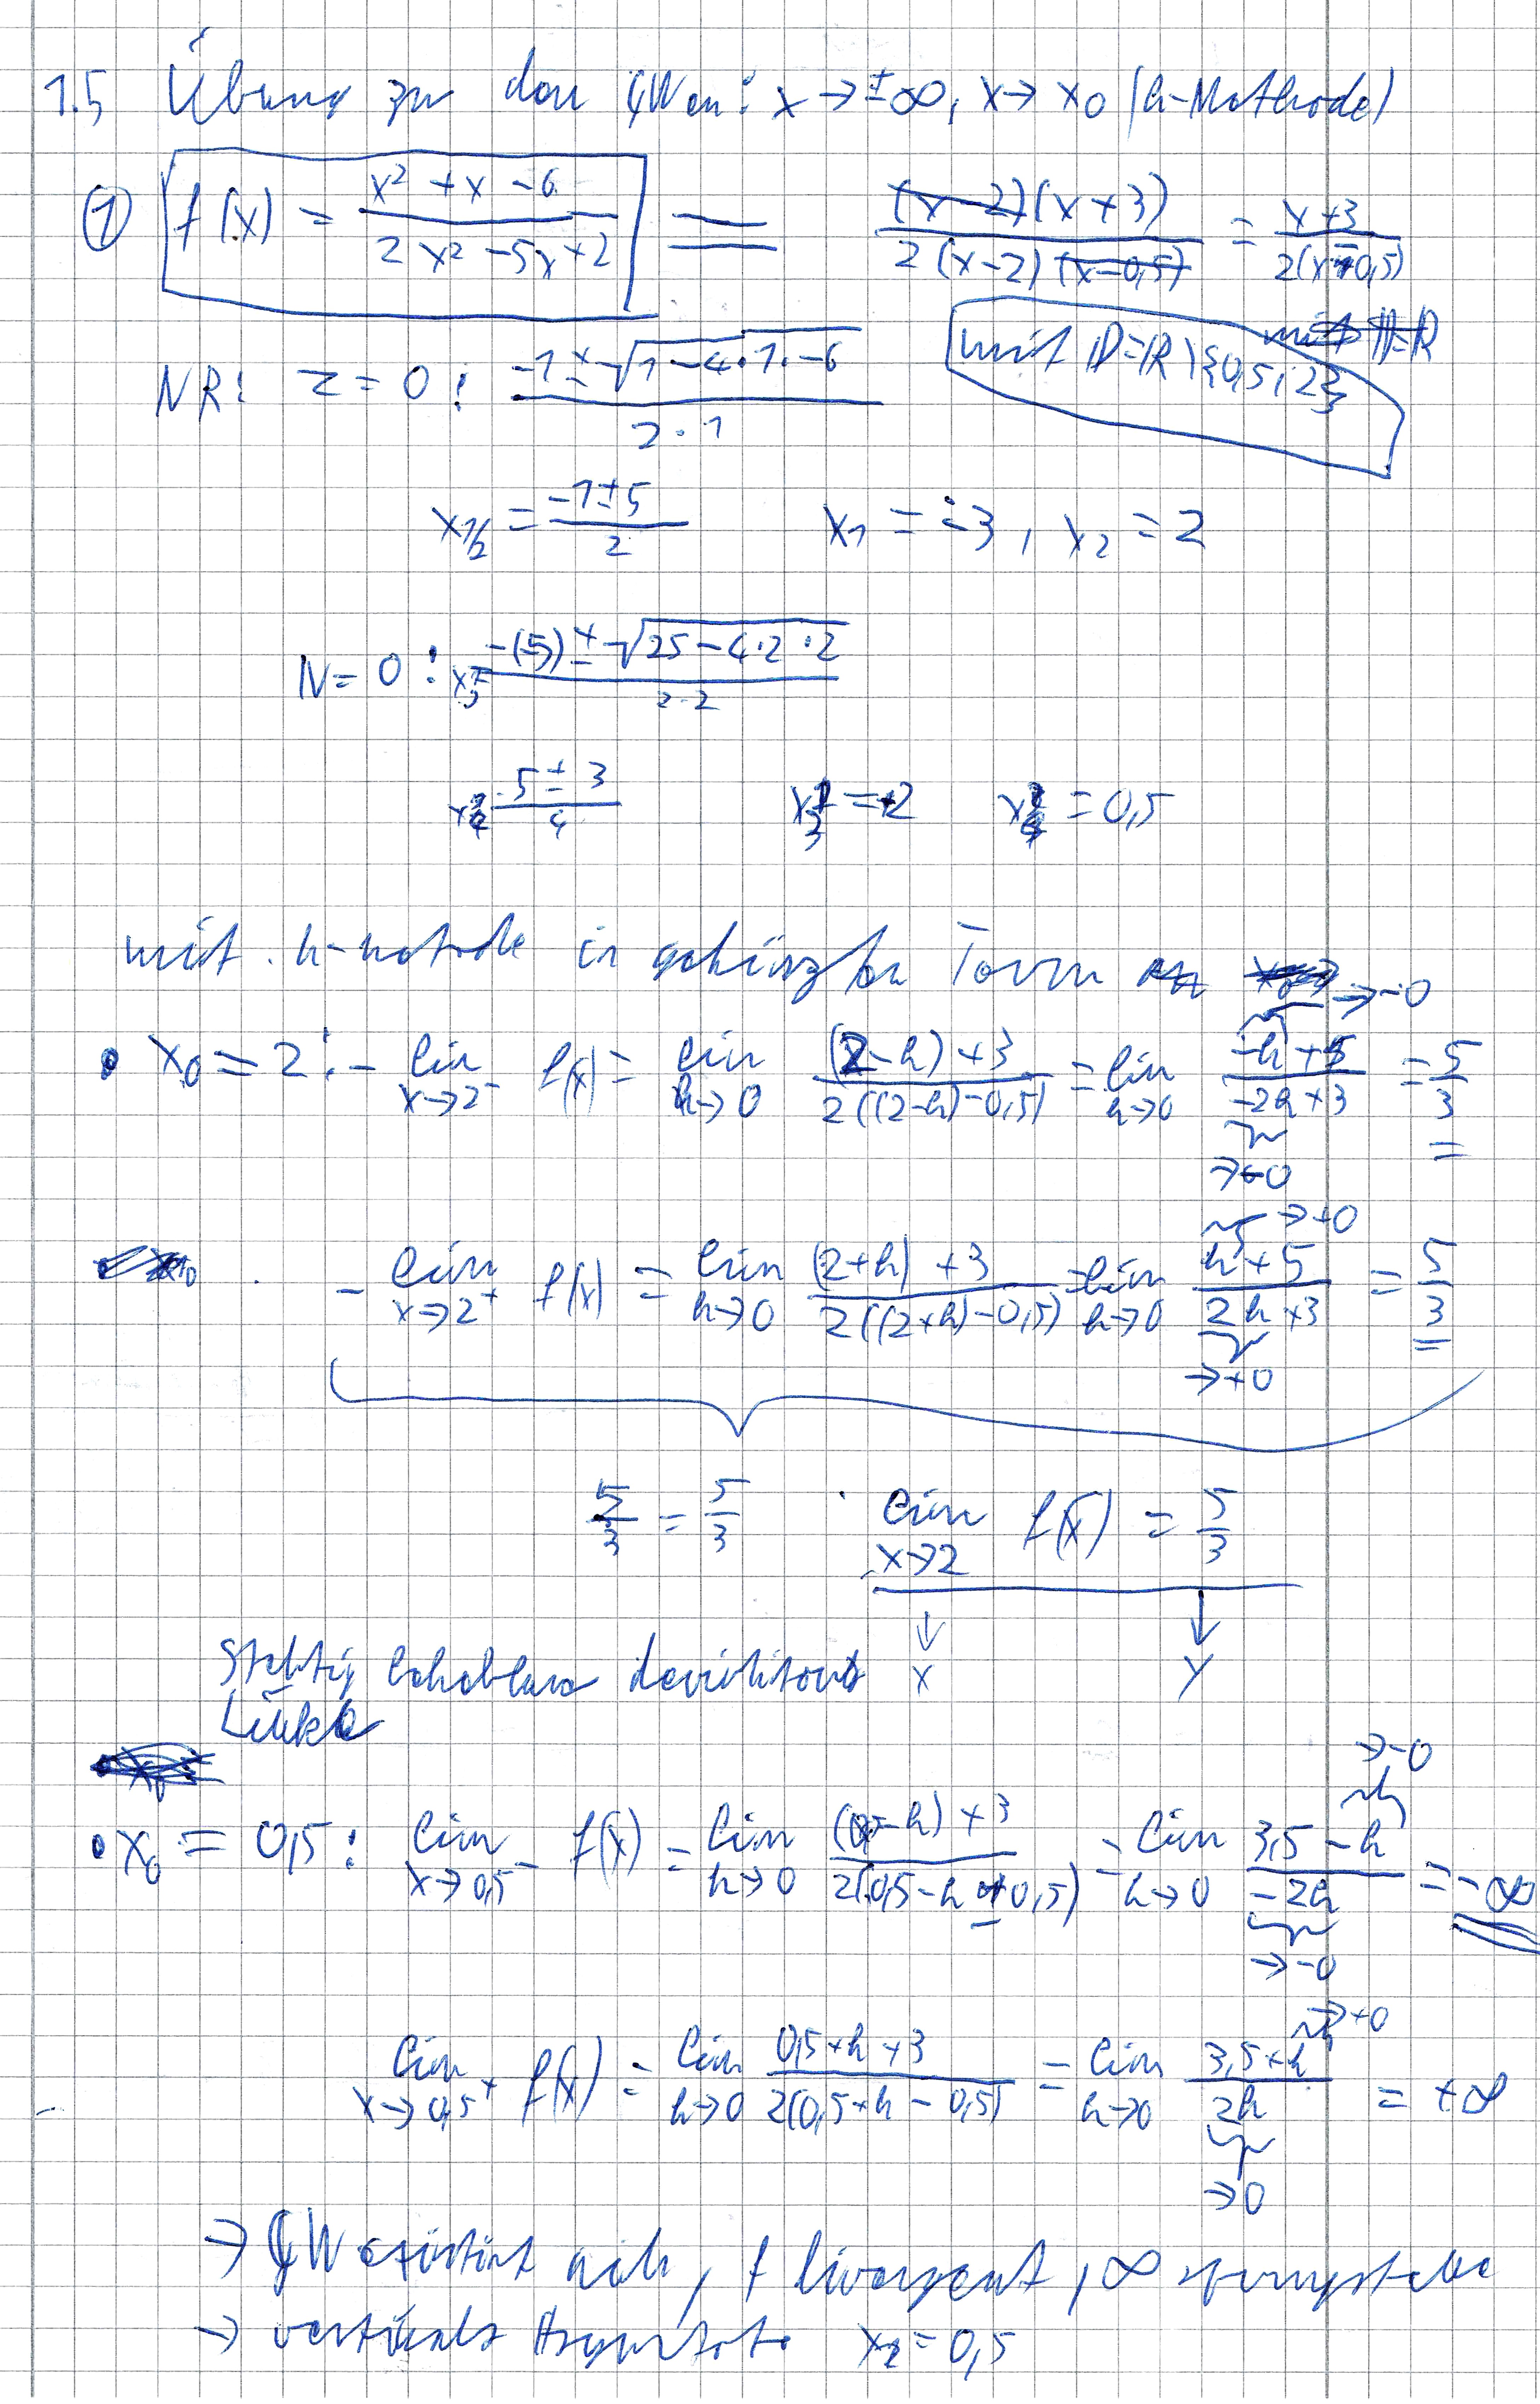 1.5 Übung zu den GWen: x → ±∞, x → x₀ (h-Methode)
① f(x) = (x² + x - 6)/(2x² - 5x + 2) = ((x-2)(x+3))/(2(x-2)(x-0,5)) = (x+3)/(2(x-0,5))
mit D=R
mit D=R\{0,5; 2}
NR: Z = 0: (-1 ± √(1-4·1·-6))/(2·1)
x1/2 = (-1±5)/2 x₁ = -3, x₂ = 2
N = 0: (-(-5) ± √(25-4·2·2))/(2·2)
(5 ± 3)/4 x₃ = +2 x₄ = 0,5
mit h-Metode in gekürzter Form
→-0
• x₀ = 2: - lim x→2⁻ f(x) = lim h→0 ((2-h)+3)/(2((2-h)-0,5)) = lim h→0 (-h+5)/(-2h+3) = 5/3
→-0
→+0
- lim x→2⁺ f(x) = lim h→0 ((2+h)+3)/(2((2+h)-0,5)) = lim h→0 (h+5)/(2h+3) = 5/3
→+0
5/3 = 5/3 lim x→2 f(x) = 5/3
↓ x ↓ y
Stehtig behebbare
Lücke
→-0
• x₀ = 0,5: lim x→0,5⁻ f(x) = lim h→0 ((0,5-h)+3)/(2(0,5-h-0,5)) = lim h→0 (3,5-h)/(-2h) = -∞
→-0
→+0
lim x→0,5⁺ f(x) = lim h→0 (0,5+h+3)/(2(0,5+h-0,5)) = lim h→0 (3,5+h)/(2h) = +∞
→0
→ GW existiert nich, f divergent, ∞ sprungstelle
→ vertikale Asymptote x₂ = 0,5